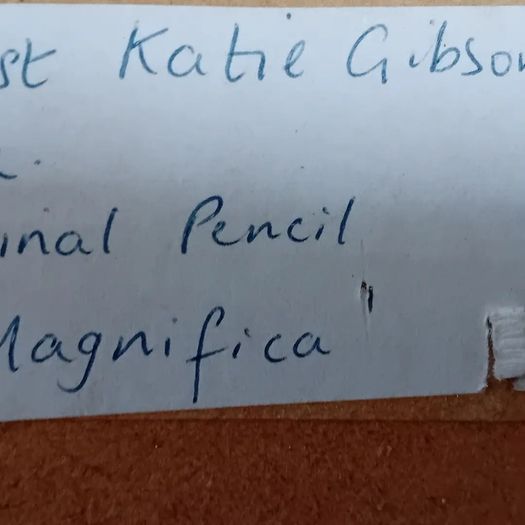 st Katie Gibson
inal Pencil
Magnifica"